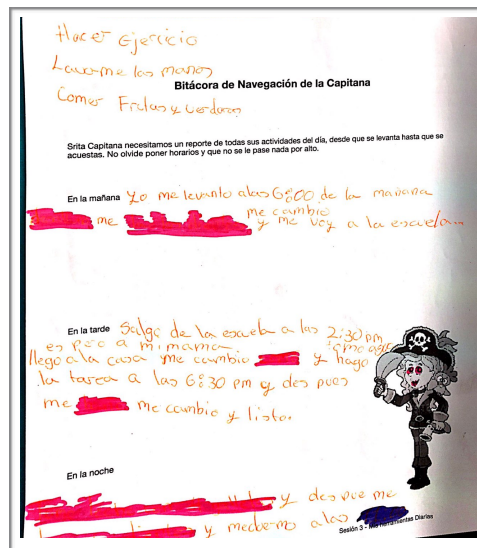 Hacer Ejercicio
Lavarme las manos
Comer Frutas y verduras
Bitácora de Navegación de la Capitana
Srita Capitana necesitamos un reporte de todas sus actividades del día, desde que se levanta hasta que se
acuestas. No olvide poner horarios y que no se le pase nada por alto.
En la mañana yo me levanto alas 6:00 de la mañana
me me cambio
y me voy a la escuela
En la tarde Salgo de la escuela a las 2:30 pm
es pero a mi mama tomo agua
llego a la casa me cambio y hago
la tarea a las 6:30 pm y des pues
me me cambio y listo.
En la noche
y des pue me
y me duermo a las
Sesión 3 - Herramientas Diarias